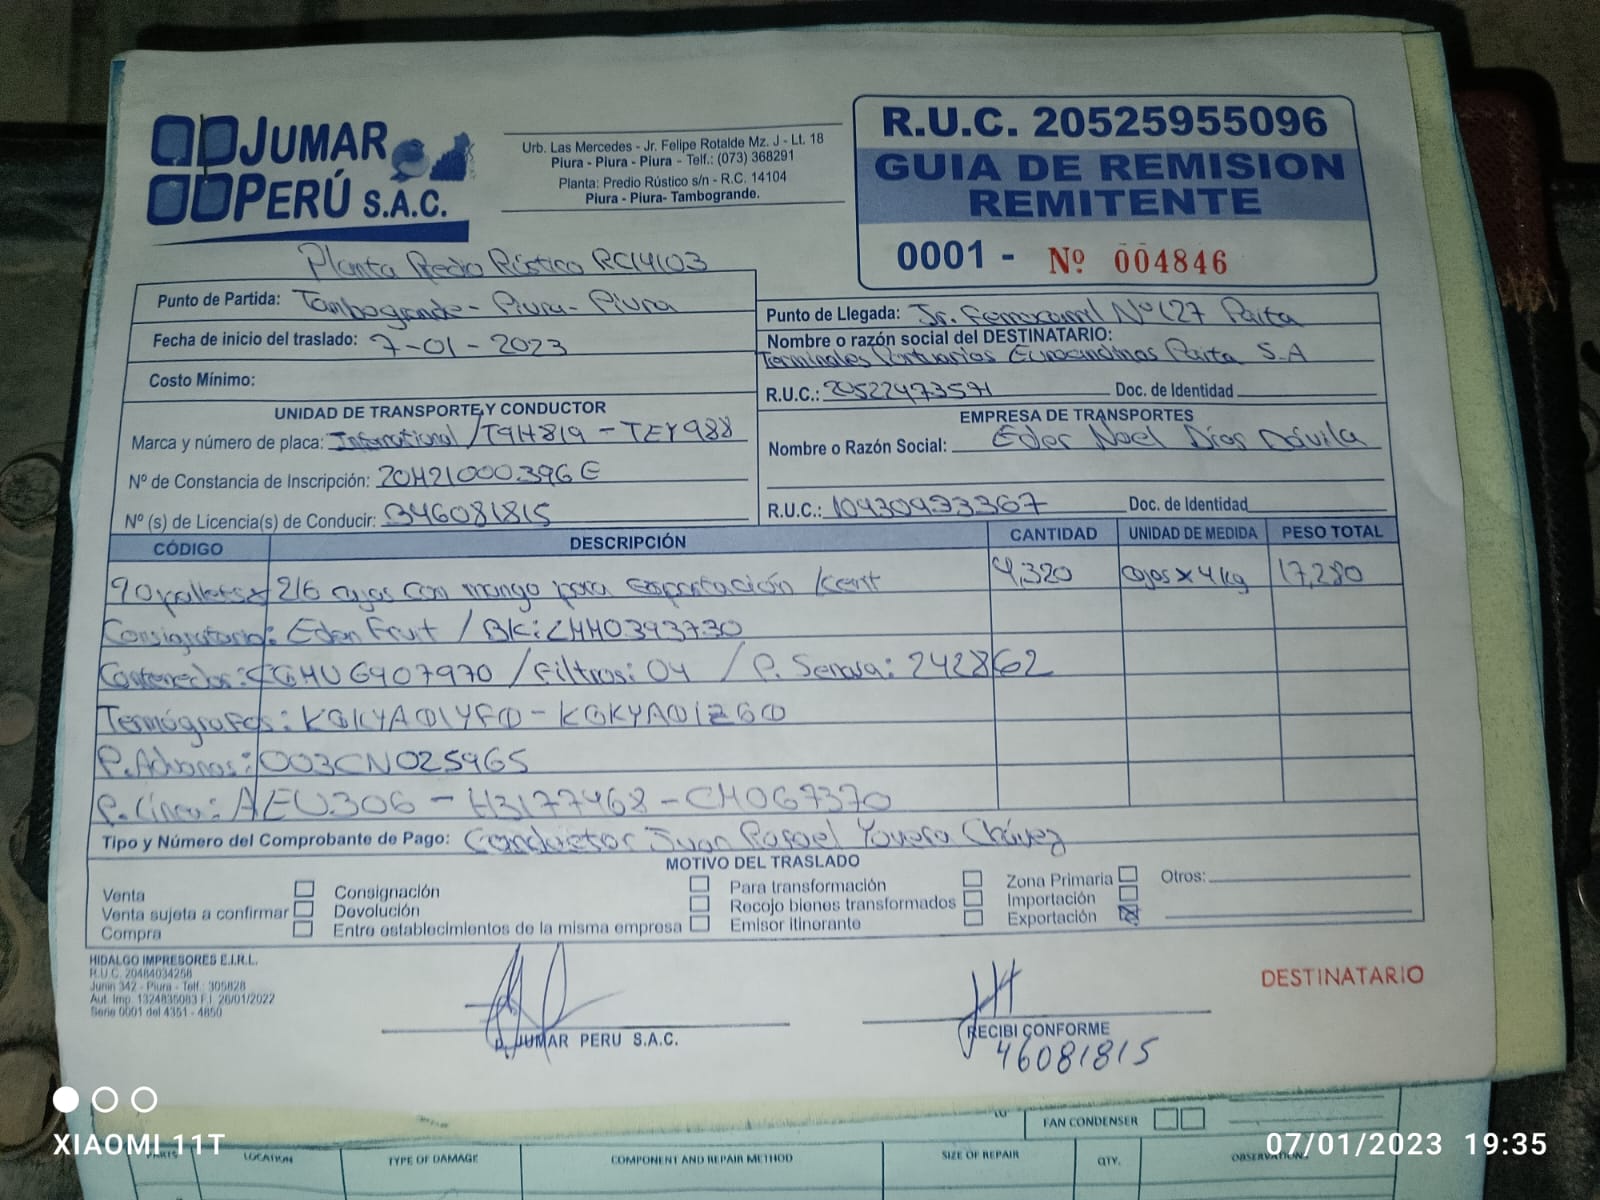 JUMAR
PERÚ S.A.C.
Urb. Las Mercedes - Jr. Felipe Rotalde Mz. J - Lt. 18
Piura - Piura - Piura - Telf.: (073) 368291
Planta: Predio Rústico s/n - R.C. 14104
Piura - Piura- Tambogrande.
R.U.C. 20525955096
GUIA DE REMISION
REMITENTE
0001 - Nº 004846
Planta Predio Rústico RC14103
Punto de Partida: Tambogrande - Piura - Piura
Fecha de inicio del traslado: 7-01-2023
Costo Mínimo:
Punto de Llegada: Jr. Ferrocarril Nº 127 Paita
Nombre o razón social del DESTINATARIO:
Terminales Portuarios Euroandinos Paita S.A
R.U.C.: 20522473571 Doc. de Identidad
UNIDAD DE TRANSPORTE Y CONDUCTOR
Marca y número de placa: International / T9H819 - TEY988
Nº de Constancia de Inscripción: 20M21000396E
Nº (s) de Licencia(s) de Conducir: B46081815
EMPRESA DE TRANSPORTES
Nombre o Razón Social: Eder Noel Dios Dávila
R.U.C.: 10430933367 Doc. de Identidad
CÓDIGO DESCRIPCIÓN CANTIDAD UNIDAD DE MEDIDA PESO TOTAL
20 pallets x 216 cajas con mango para exportación / kent 4,320 cajas x 4kg 17,280
Consignatario: Eden Fruit / BK: LMM0393730
Contenedor: CGMU6907970 / Filtros: 04 / P. Senasa: 242862
Termógrafos: KGKYA01YF0 - KGKYA01Z60
P. Aduanas: 003CN025965
P. Línea: AEU306 - H3177468 - CH067370
Tipo y Número del Comprobante de Pago: Conductor Juan Rafael Yovera Chávez
MOTIVO DEL TRASLADO
Venta
Venta sujeta a confirmar
Compra
Consignación
Devolución
Entre establecimientos de la misma empresa
Para transformación
Recojo bienes transformados
Emisor itinerante
Zona Primaria
Importación
Exportación
Otros:
HIDALGO IMPRESORES E.I.R.L.
R.U.C. 20484034258
Junin 342 - Piura - Telf.: 305828
Aut. Imp. 1324835083 F.I. 26/01/2022
Serie 0001 del 4351 - 4850
p. JUMAR PERU S.A.C.
RECIBI CONFORME
46081815
DESTINATARIO
FAN CONDENSER
PARTS LOCATION TYPE OF DAMAGE COMPONENT AND REPAIR METHOD SIZE OF REPAIR QTY.
XIAOMI 11T
07/01/2023 19:35